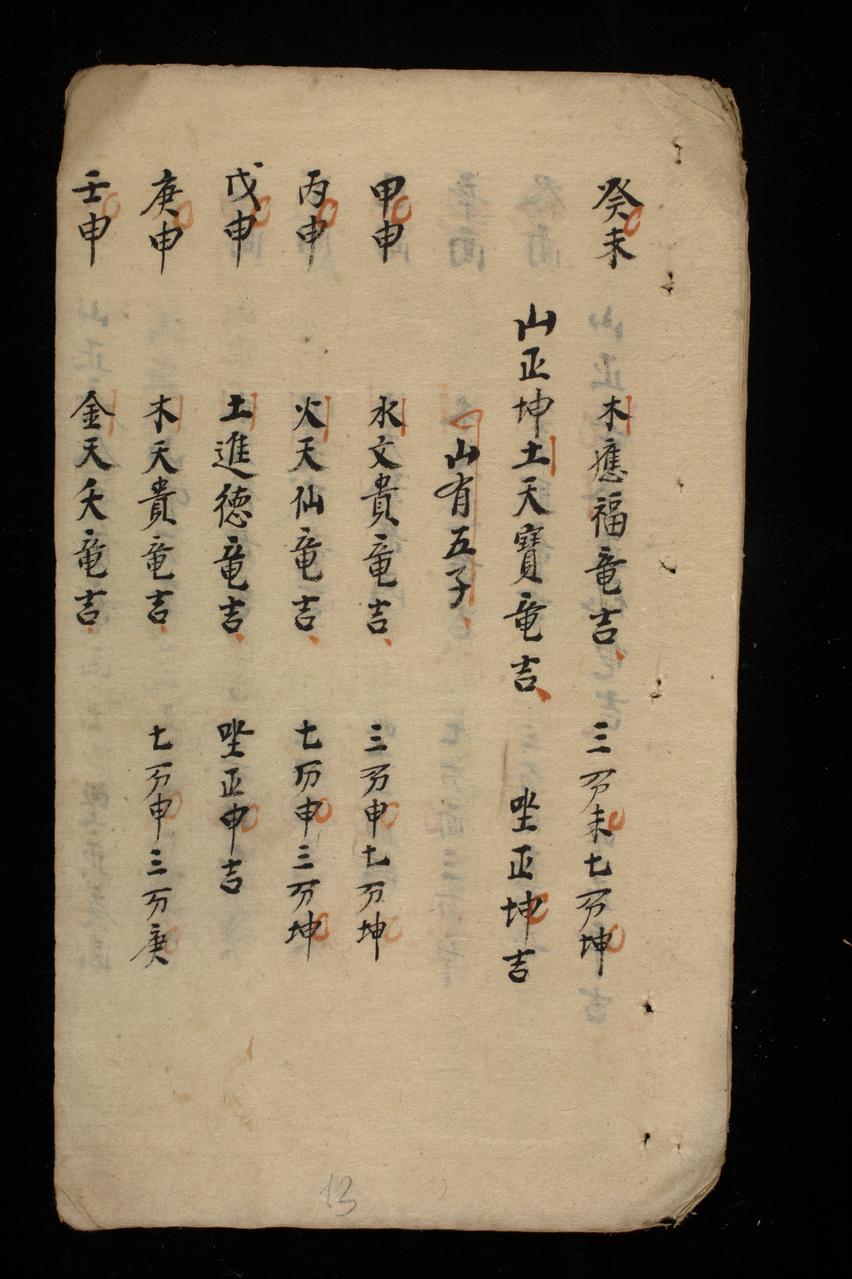 癸未 木應福竜吉 三分未七分坤
山正坤土天寳竜吉 坐正坤吉
山有五子
甲申 水文貴竜吉 三分申七分坤
丙申 火天仙竜吉 七分申三分坤
戊申 土進德竜吉 坐正申吉
庚申 木天貴竜吉 七分申三分庚
壬申 金天夭竜吉
13